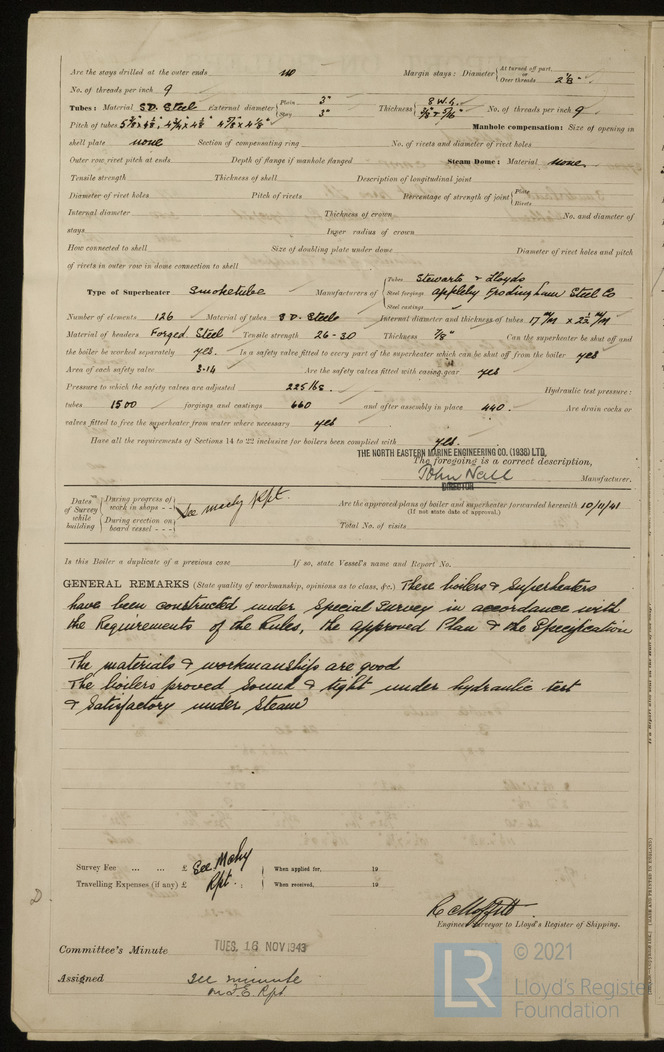 Are the stays drilled at the outer ends no Margin stays: Diameter { At turned off part, or Over threads 2 1/8"
No. of threads per inch 9
Tubes: Material S.D. Steel External diameter { Plain 3" Stay 3" Thickness { 8 W.G. No. of threads per inch 9
Pitch of tubes Manhole compensation: Size of opening in
shell plate none Section of compensating ring No. of rivets and diameter of rivet holes
Outer row rivet pitch at ends Depth of flange if manhole flanged Steam Dome: Material none
Tensile strength Thickness of shell Description of longitudinal joint
Diameter of rivet holes Pitch of rivets Percentage of strength of joint { Plate Rivets
Internal diameter Thickness of crown No. and diameter of
stays Inner radius of crown
How connected to shell Size of doubling plate under dome Diameter of rivet holes and pitch
of rivets in outer row in dome connection to shell
Type of Superheater Smoketube Manufacturers of { Tubes Stewarts & Lloyds
Steel forgings Appleby Frodingham Steel Co
Steel castings
Number of elements 126 Material of tubes S.D. Steel Internal diameter and thickness of tubes 17 m/m x 23 m/m
Material of headers Forged Steel Tensile strength 26-30 Thickness 7/8" Can the superheater be shut off and
the boiler be worked separately yes. Is a safety valve fitted to every part of the superheater which can be shut off from the boiler yes
Area of each safety valve 3.14 Are the safety valves fitted with easing gear yes
Pressure to which the safety valves are adjusted 225 lbs. Hydraulic test pressure:
tubes 1500 forgings and castings 660 and after assembly in place 440. Are drain cocks or
valves fitted to free the superheater from water where necessary yes
Have all the requirements of Sections 14 to 22 inclusive for boilers been complied with yes.
THE NORTH EASTERN MARINE ENGINEERING CO. (1938) LTD.
The foregoing is a correct description,
John Neill Manufacturer.
DIRECTOR
Dates of Survey while building { During progress of work in shops - - During erection on board vessel - - - See Machy Rpt. Are the approved plans of boiler and superheater forwarded herewith 10/11/41
(If not state date of approval.)
Total No. of visits
Is this Boiler a duplicate of a previous case If so, state Vessel's name and Report No.
GENERAL REMARKS (State quality of workmanship, opinions as to class, &c.) These boilers & Superheaters
have been constructed under Special Survey in accordance with
the Requirements of the Rules, the approved Plan & the Specification
The materials & workmanship are good
The boilers proved sound & tight under hydraulic test
& satisfactory under steam
Survey Fee ... ... £ See Machy Rpt. { When applied for, 19
Travelling Expenses (if any) £ { When received, 19
R C Moffitt
Engineer Surveyor to Lloyd's Register of Shipping.
Committee's Minute TUES. 16 NOV 1943
Assigned See minute
on F.E. Rpt
D
© 2021
LR Lloyd's Register
Foundation